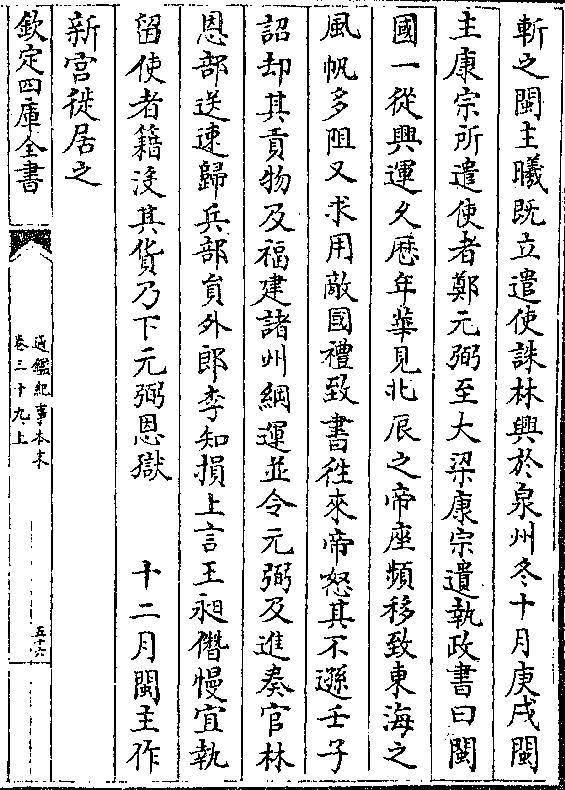 斬之閩主曦既立遣使誅林興於泉州冬十月庚戌閩
主康宗所遣使者鄭元弼至大梁康宗遺執政書曰閩
國一從興運久厯年華見北辰之帝座頻移致東海之
風帆多阻又求用敵國禮致書往來帝怒其不遜壬子
詔却其貢物及福建諸州綱運並令元弼及進奏官林
恩部送速歸兵部貟外郎李知損上言王昶僭慢宜執
留使者籍沒其貨乃下元弼恩獄　十二月閩主作
新宫徙居之
欽定四庫全書
通鑑紀事本末
卷三十九上
五十六